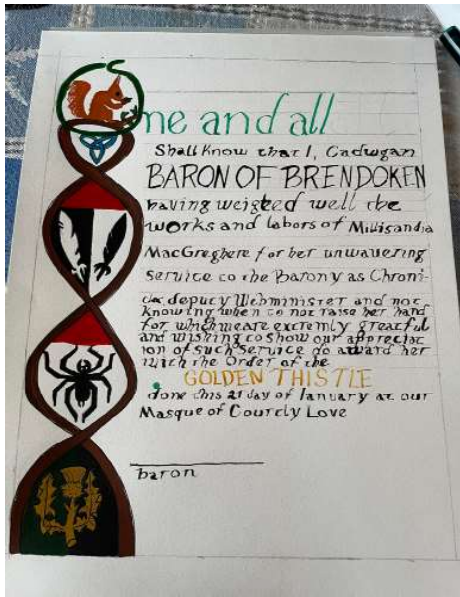 One and all
Shall Know that I, Cadwgan
BARON OF BRENDOKEN
having weighed well the
works and labors of Millisandia
MacGreghere for her unwavering
service to the Barony as Chroni-
cler, deputy Webminister and not
knowing when to not raise her hand
for which we are extremly greatful
and wishing to show our appreciat
ion of such service do award her
with the Order of the
GOLDEN THISTLE
done this 21 day of January at our
Masque of Courtly Love
baron